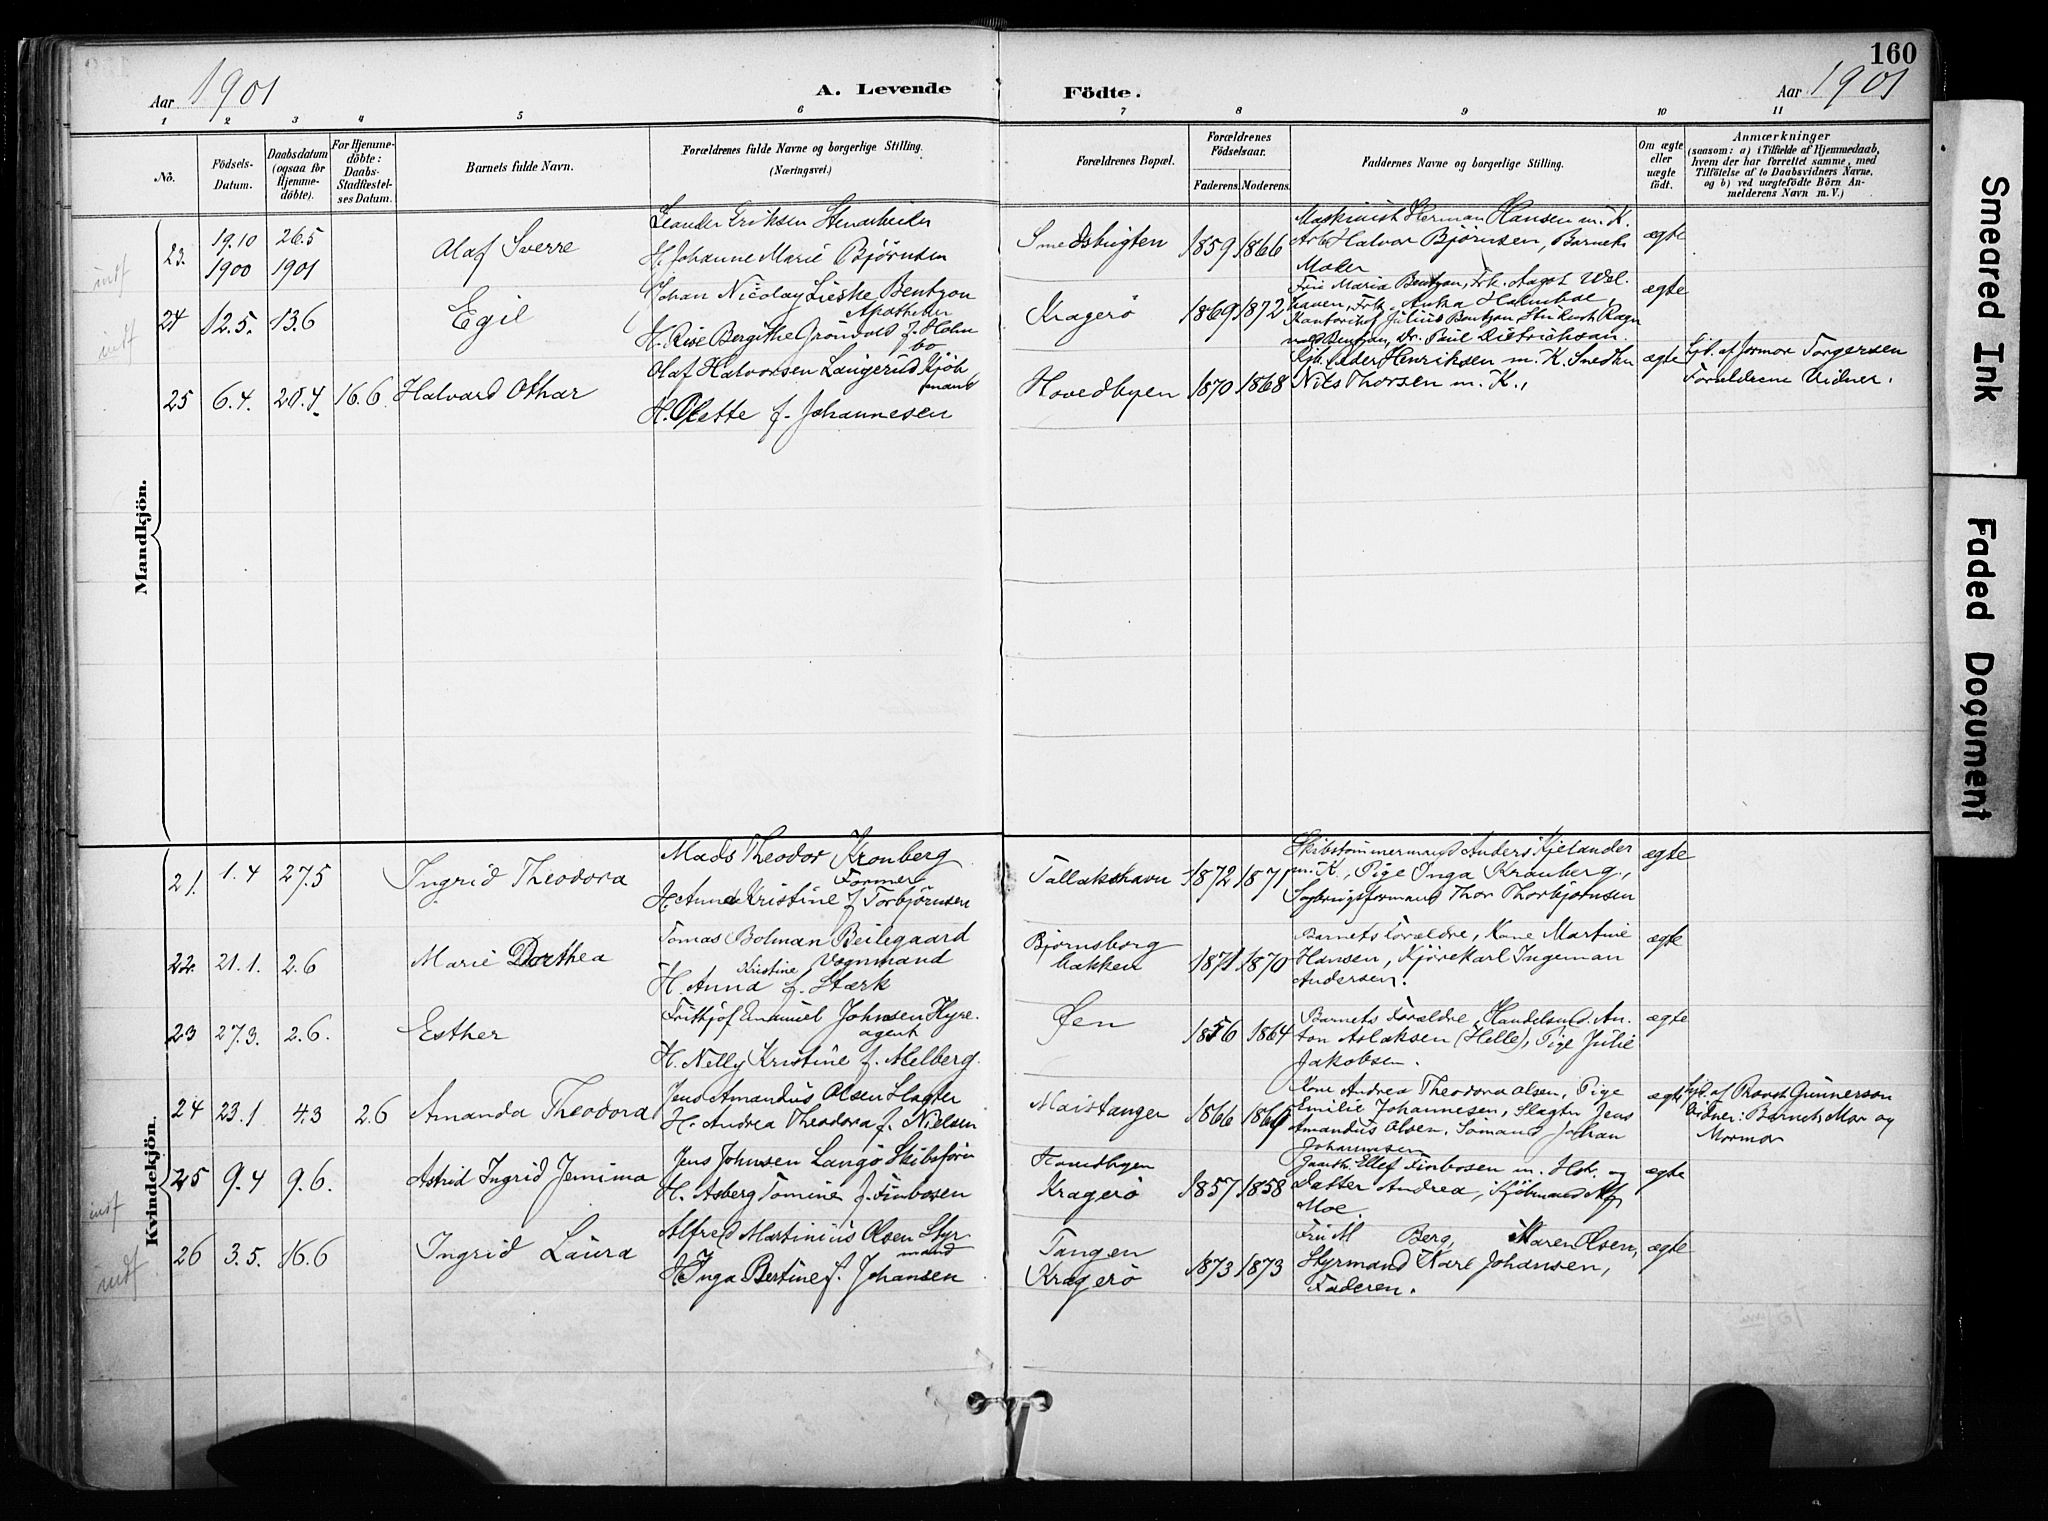 160
Aar 1901
A. Levende Födte.
Aar 1901
1 2 3 4 5 6 7 8 9 10 11
No.
Födsels-Datum.
Daabsdatum (ogsaa for Hjemmedöbte).
For Hjemmedöbte: Daabs-Stadfæstelses Datum.
Barnets fulde Navn.
Forældrenes fulde Navne og borgerlige Stilling.
(Næringsvei.)
Forældrenes Bopæl.
Forældrenes Födselsaar.
Faderens. Moderens.
Faddernes Navne og borgerlige Stilling.
Om ægte eller uægte födt.
Anmærkninger
(saasom: a) i Tilfælde af Hjemmedaab, hvem der har forrettet samme, med Tilföielse af to Daabsvidners Navne, og b) ved uægtefödte Börn Anmelderens Navn m. V.)
Mandkjön.
23. 19.10 1900 26.5 1901 Olaf Sverre
Leander Eriksen Stenarbeider
H. Johanne Marie Bjørnsen
Smedsbugten 1859 1866
Maskinist Herman Hansen m. K.
Arb. Halvor Bjørnsen, Barnets
Moder
ægte
indf
24 12.5. 13.6 Egil
Johan Nicolay Lieske Bentzon
Apotheker
H. Bergithe Grönvold f. Holmbo
Kragerö 1869 1872
Fru Maria Bentzon, Frk. Aagot Wel
haven, Frk. Anka Holmboe,
Julius Bentzon Ragn
vald Bentzon, Dr. Paul Dietrichson.
ægte
indf
25 6.4. 20.4. 16.6 Halvard Othar
Olaf Halvorsen Langerud Kjöb
mand
H. Olette f. Johannesen
Hovedbyen 1870 1868
Peder Henriksen m. K.
Nils Thorsen m. K.,
ægte
Hjd. af Jormor Torgersen
Forældrene Vidner.
Kvindekjön.
21. 1.4 27.5 Ingrid Theodora
Mads Theodor Kronberg
Former
H. Anna Kristine f. Torbjörnsen
Tallakshavn 1872 1871
Skibstömmermand Anders Kjelander
m. K., Pige Inga Kronberg,
Thor Thorbjörnsen
ægte
22. 21.1. 2.6 Marie Dorthea
Tomas Bolman Beilegaard
Vognmand
H. Anna Kristine f. Stærk
Bjørnsborg
bakken
1871 1870
Barnets Forældre, Kone Martine
Hansen, Kjörekarl Ingeman
Andersen.
ægte
23 27.3. 2.6. Esther
Frithjof Emanuel Johnsen Hyre
agent
H. Nelly Kristine f. Melberg.
Öen 1856 1864
Barnets Forældre, Handelsmd. An
ton Aslaksen (Helle), Pige Julie
Jakobsen.
ægte
24 23.1 4.3 2.6 Amanda Theodora
Jens Amandus Olsen Slagter
H. Andrea Theodora f. Nielsen
1866
Kone Andrea Theodora Olsen, Pige
Emilie Johannesen, Slagter Jens
Amandus Olsen, Sömand Johan
Johannesen
ægte
Hjd. af Provst Gunnerson
Vidner: Barnets Mor og
Mormor
25 9.4 9.6. Astrid Ingrid Jemima
Jens Johnsen Langö Skibsförer
H. Asberg Tomine f. Finbosen
Hovedbyen
Kragerö
1857 1858
Ellef Finbosen m. Hst. og
Datter Andrea, Kjöbmand
Moe.
ægte
indf
26 3.5. 16.6 Ingrid Laura
Alfred Martinius Olsen Styr
mand
H. Inga Bertine f. Johansen
Tangen
Kragerö
1873 1873
Fru M Berg, Maren Olsen,
Styrmand Karl Johansen,
Faderen.
ægte
indf
Smeared Ink
Faded Document